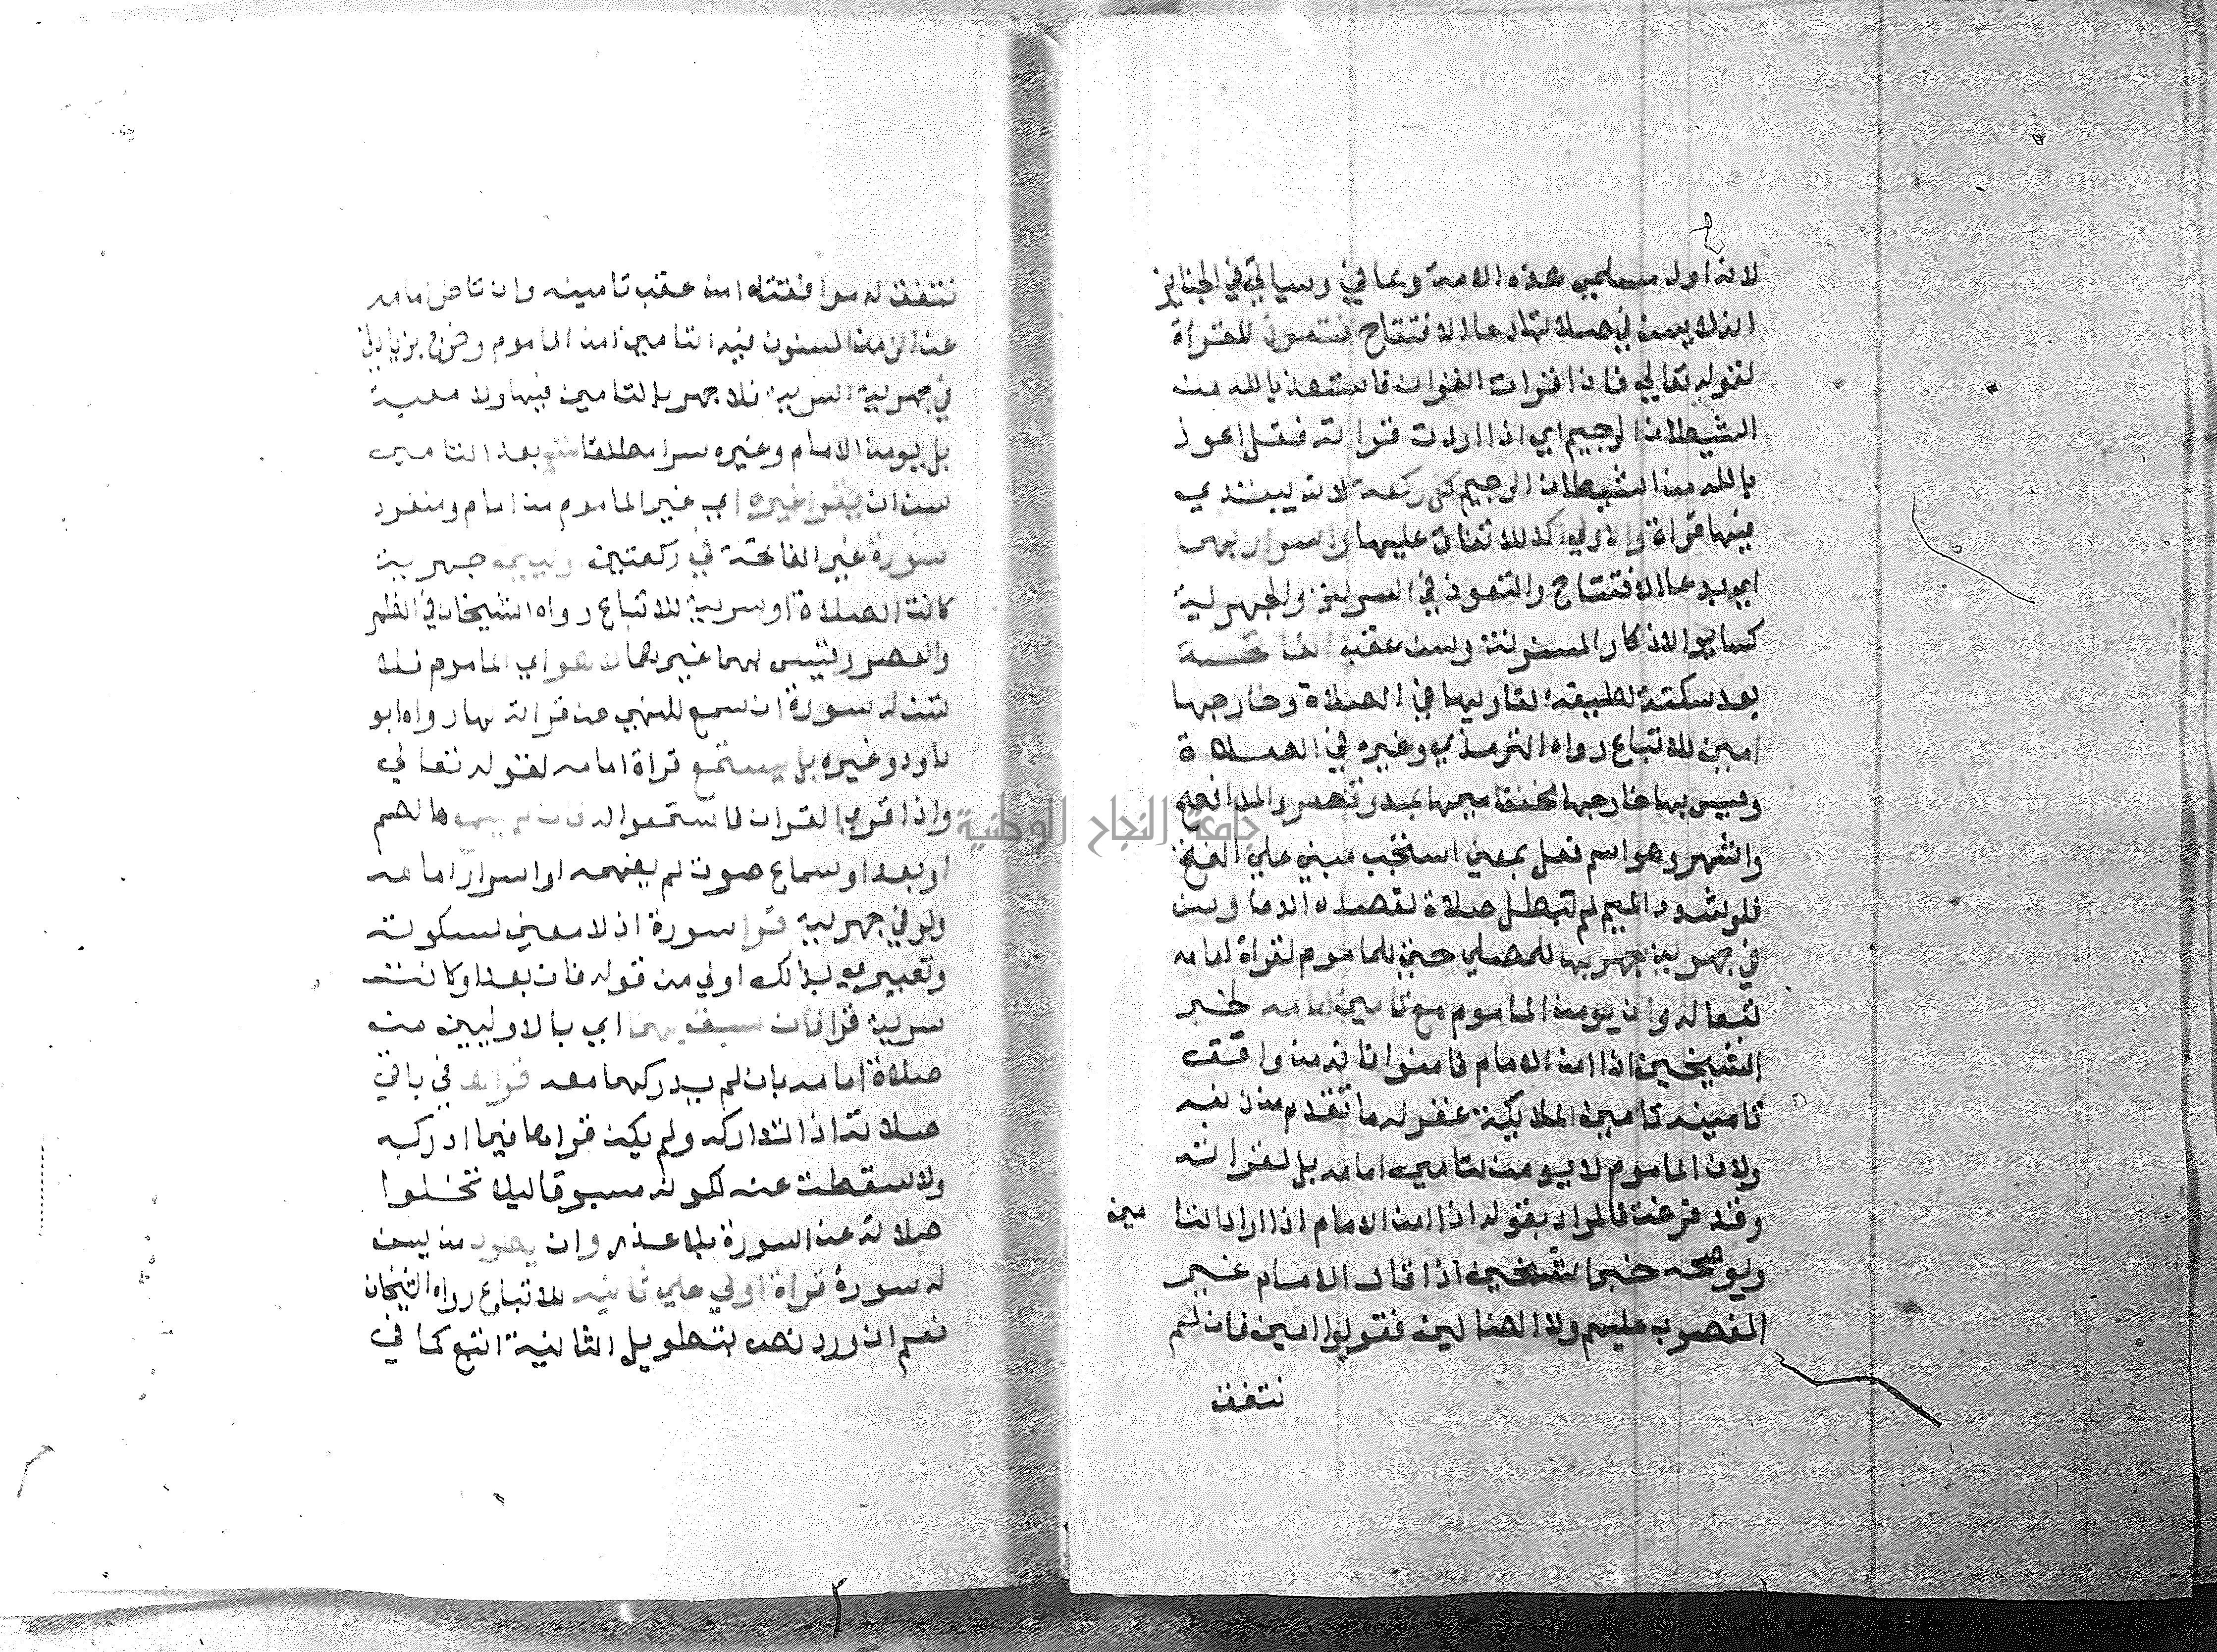 لانه اول مسلمي هذه الامة وبما في وسياتي في الجنايز
انه لا يسن في صلاتها دعا الافتتاح فتعوذ للقراة
لقوله تعالي فاذا قرات القران فاستعذ بالله من
الشيطان الرجيم اي اذا اردت قراته فقل اعوذ
بالله من الشيطان الرجيم كل ركعة لانه يبتدي
فيها قراة والاولي اكد للاتفاق عليها واسرار بهما
اي بدعا الافتتاح والتعوذ في السرية والجهرية
كساير الاذكار المسنونة وسن عقب الفاتحة
بعد سكتة لطيفة لقاريها في الصلاة وخارجها
امين للاتباع رواه الترمذي وغيره في الصلاة
وقيس بها خارجها مخففا ميمها بمد وقصر والمد افصح
واشهر وهو اسم فعل بمعني استجب مبني علي الفتح
فلو شدد الميم لم تبطل صلاة لقصده الدعا وسن
في جهرية جهر بها للمصلي حتي للماموم لقراة امامه
تبعا له وان يومن الماموم مع تامين امامه لخبر
الشيخين اذا امن الامام فامنوا فانه من وافق
تامينه تامين الملايكة غفر له ما تقدم من ذنبه
ولان الماموم لا يومن لتامين امامه بل لقراته
وقد فرغت فالمراد بقوله اذا امن الامام اذا اراد التا مين
ويوضحه خبر الشيخين اذا قال الامام غير
المغضوب عليهم ولا الضالين فقولوا امين فان لم
تتفق
تتفق له موافقته امن عقب تامينه وان تاخر امامه
عن الزمن المسنون فيه التامين امن الماموم وخرج بزيادتي
في جهرية السرية فلا جهر بالتامين فيها ولا معية
بل يومن الامام وغيره سرا مطلقا ثم بعد التامين
سن ان يقرا غيره اي غير الماموم من امام ومنفرد
سورة غير الفاتحة في ركعتين اوليين جهرية
كانت الصلاة او سرية للاتباع رواه الشيخان في الظهر
والعصر وقيس بهما غيرهما لا هو اي الماموم فلا
تسن له سورة ان سمع للنهي عن قراته لها رواه ابو
داود وغيره بل يستمع قراة امامه لقوله تعالي
واذا قري القران فاستمعوا له فان لم يسمعها لصمم
او بعد او سماع صوت لم يفهمه او اسرار امامه
ولو في جهرية قرا سورة اذ لا معني لسكوته
وتعبيري بذلك اولي من قوله فان بعد او كانت
سرية قرا فان سبق بهما اي بالاوليين من
صلاة امامه بان لم يدركهما معه قراها في باقي
صلاته اذا تداركه ولم يكن قراها فيما ادركه
ولا سقطت عنه لكونه مسبوقا ليلا تخلوا
صلاته عن السورة بلا عذر وان يطول من يسن
له سورة قراة اولي علي ثانية للاتباع رواه الشيخان
نعم ان ورد نص بتطويل الثانية اتبع كما في
جامعة النجاح الوطنية